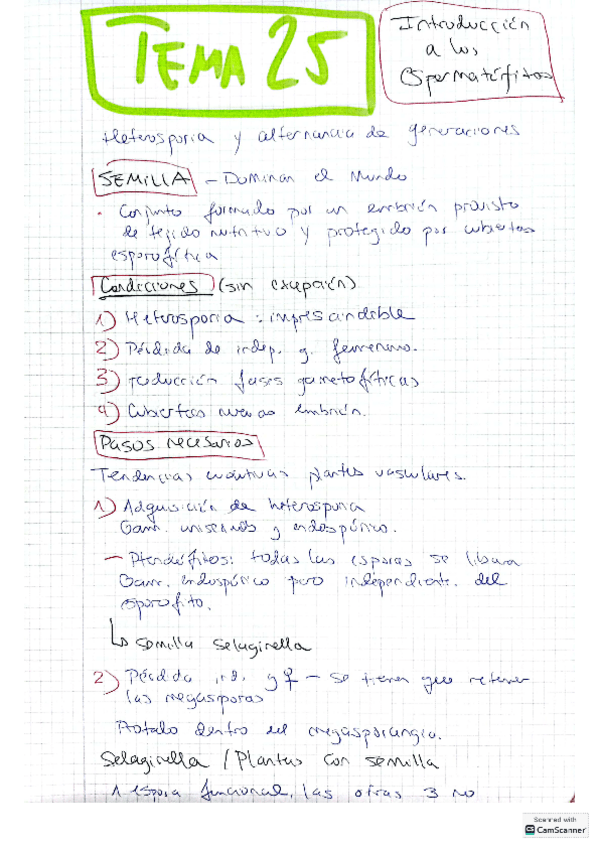 TEMA 25
Introducción
a los
Espermatófitos
Heterosporia y alternancia de generaciones
SEMILLA - Dominan el mundo
· Conjunto formado por un embrión provisto
de tejido nutritivo y protegido por cubiertas
esporofítica
Condiciones (sin excepción)
1) Heterosporia : imprescindible
2) Pérdida de indep. g. femenino.
3) reducción fases gametofíticas
4) Cubiertas nuevas embrión.
Pasos necesarios
Tendencias evolutivas plantas vasculares.
1) Adquisición de heterosporia
Gam. unisexuados y endospórico.
- Pteridófitos: todas las esporas se liberan
Gam. endospórico pero independiente. del
esporofito.
↳ semilla selaginella
2) Pérdida ind. g ♀ - se tienen que retener
las megasporas
Protalo dentro del megasporangio.
Selaginella / Plantas con semilla
1 espora funcional, las otras 3 no
Scanned with
CS CamScanner